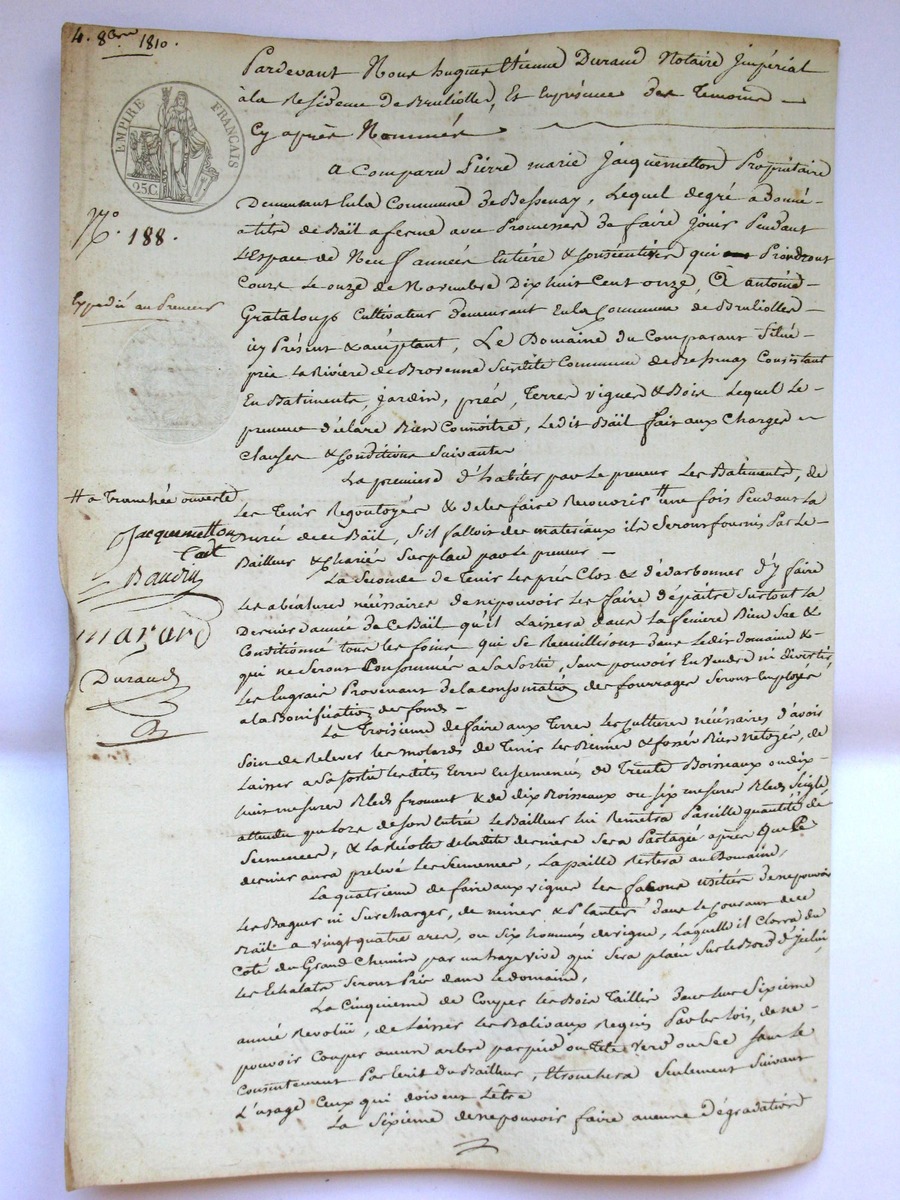 4. 8bre 1810.
EMPIRE FRANÇAIS
25C.
N.º 188.
Expédié au Preneur
# a Tranchée ouverte
Jacquemetton
Baudin
Durand
Pardevant Nous hugues Etienne Durand Notaire Jmpérial
à la Residence de Brulliolles, Et En présence des Temoins
Cy après Nommés
A Comparu Pierre marie Jacquemetton Propriétaire
Demeurant En la Commune de Bessenay, Lequel de gré a donné
a titre de Bail a ferme avec Promesse de faire Jouir Pendant
L'Espace de Neuf années Entière & Consécutives qui Prendront
Cours Le onze de Novembre Dix huit Cent onze, à antoine
Grataloup Cultivateur demeurant En la Commune de Brulliolles
icy Présent & acceptant, Le Domaine du Comparant Situé
près la Rivière de Brevenne Susdite Commune de Bessenay Consistant
En Batiments, Jardin, prés, Terres vignes & Bois Lequel Le
preneur déclare Bien Connoître, Ledit Bail fait aux Charges
Clauses & Conditions Suivantes
La premiere d'habiter par le preneur Les Bâtiments, de
Les Tenir Regoutoyés & de les faire Recouvrir # une fois Pendant La
durée de ce Bail, S'il falloit des materiaux ils Seront fournis Par Le
Bailleur & Chariés Sur place par le preneur
La Seconde de Tenir Les prés Clos & d'y faire
Les nécéssaires de ne pouvoir Les faire dépaître Surtout la
Derniere année de Ce Bail qu'il Laissera dans La feniere Bien Sec &
Conditionné tous les foins qui Se Recuilliront dans Ledit Domaine &
qui ne Seront Consommés a Sa Sortie, Sans pouvoir En vendre ni divertir,
Les Engrais Provenant de la consomation des fourrages Seront Employés
a la Bonification des fonds
La Troisieme de faire aux Terres Les Cultures nécéssaires d'avoir
Soin de Relever Les de Tenir Les & fossés Bien Netoyés, de
Laisser a Sa Sortie Les dites Terres Ensemencées de Trente Boisseaux ou dix
huit mesures Bleds froment & de dix Boisseaux ou Six mesures Bleds Seigle
attendu que lors de Son Entrée Le Bailleur Lui Remettra Pareille quantité de
Semences, & La Récolte de Ladite derniere Sera Partagée après Que Le
dernier aura prelevé Les Semences, La paille Restera au Domaine,
La quatrieme de faire aux vignes Les façons usitées de ne pouvoir
Les Baguer ni Surcharger, de miner & Planter dans le Courant de ce
Bail a vingt quatre ares, ou Six hommés de vigne, Laquelle il Clorra du
Coté du Grand Chemin par une haye vive qui Sera Sur le Bord
Les Echalats Seront Pris dans Le domaine,
La Cinquieme de Couper Les Bois Taillis dans leur Sixieme
année Revolüe, de Laisser Les Balivaux Requis Par les Lois, de ne
pouvoir Couper aucun arbre par pied ou Tête vert ou Sec Sans Le
Consentement Par Ecrit du Bailleur, Etronchera Seulement Suivant
L'usage Ceux qui doivent L'être
La Sixieme de ne pouvoir faire aucune dégradation